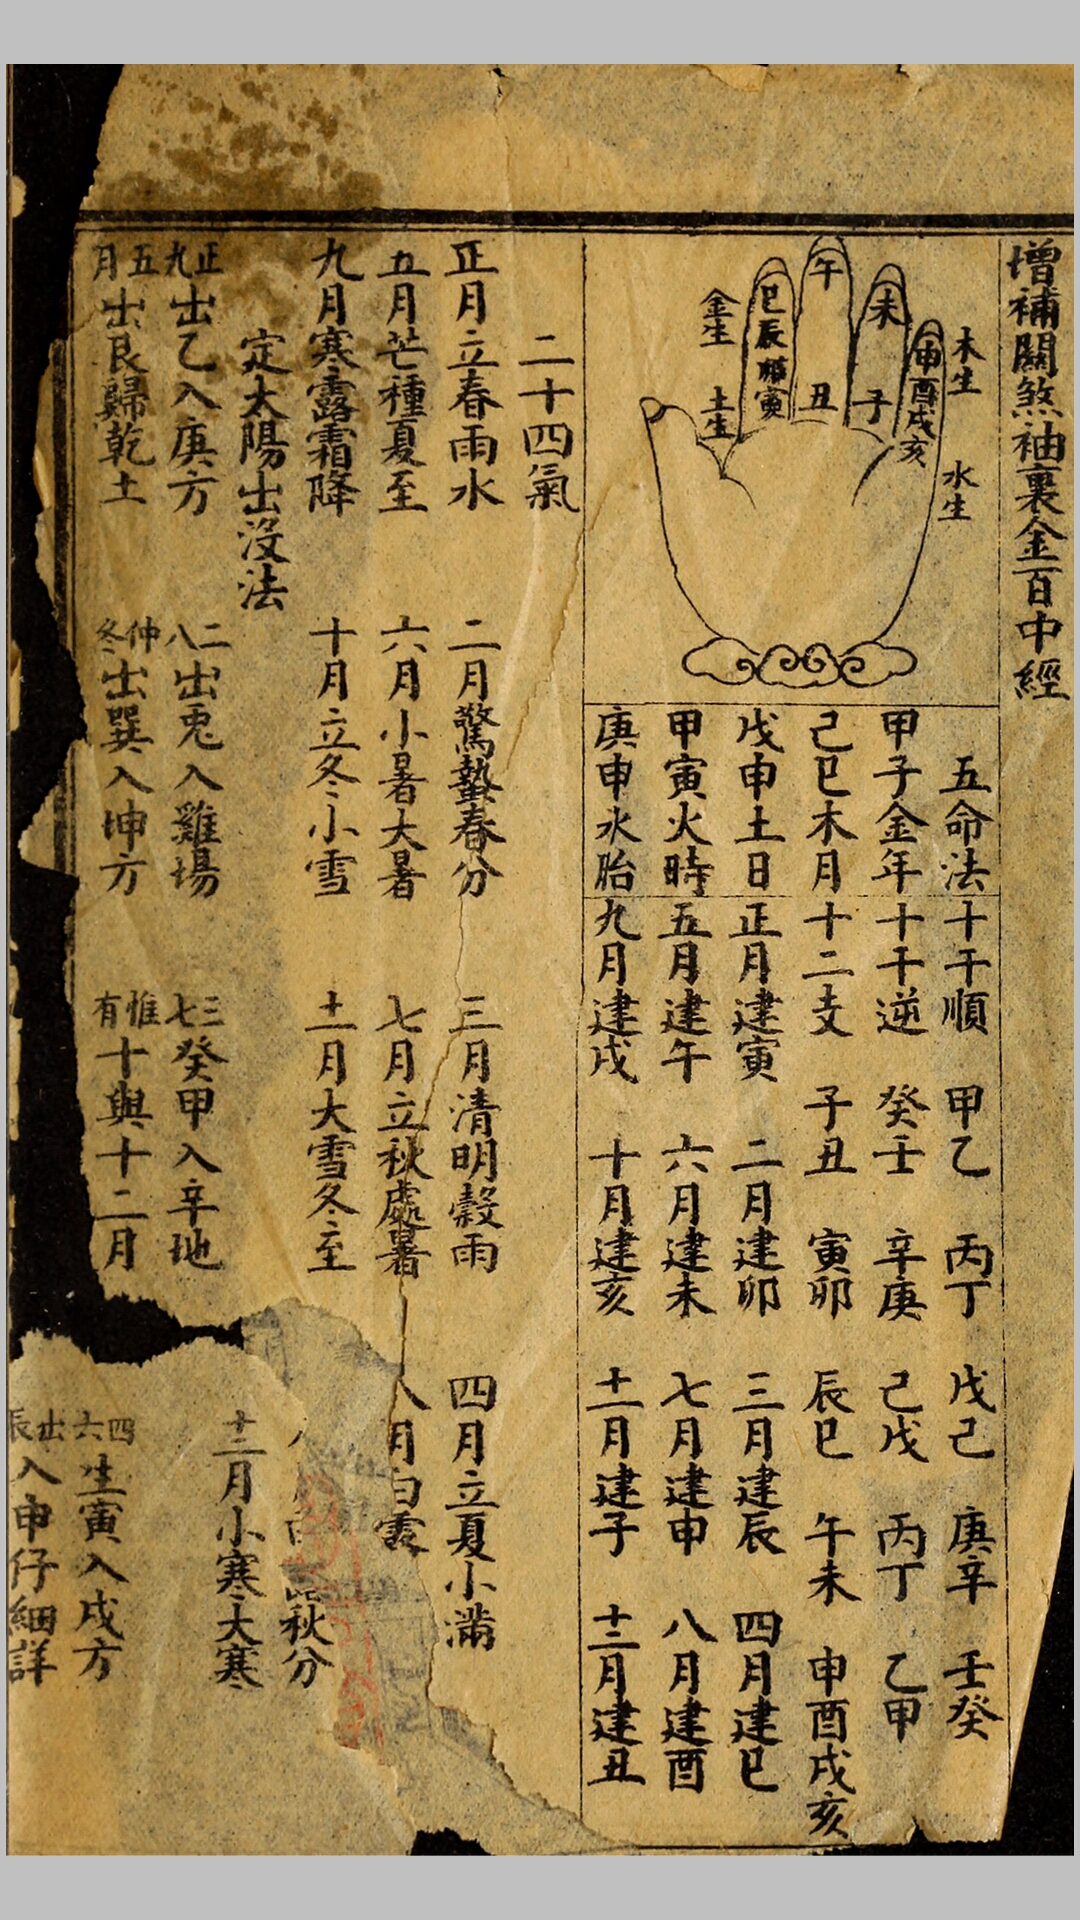 增補關煞袖裏金百中經
木生
水生
金生
土生
巳辰卯寅
午
丑
未
子
申酉戌亥
五命法
甲子金年
己巳木月
戊申土日
甲寅火時
庚申水胎
十干順 甲乙 丙丁 戊己 庚辛 壬癸
十干逆 癸壬 辛庚 己戊 丙丁 乙甲
十二支 子丑 寅卯 辰巳 午未 申酉戌亥
正月建寅 二月建卯 三月建辰 四月建巳
五月建午 六月建未 七月建申 八月建酉
九月建戌 十月建亥 十一月建子 十二月建丑
二十四氣
正月立春雨水 二月驚蟄春分 三月清明穀雨 四月立夏小滿
五月芒種夏至 六月小暑大暑 七月立秋處暑 八月白露秋分
九月寒露霜降 十月立冬小雪 十一月大雪冬至 十二月小寒大寒
定太陽出沒法
正九出乙入庚方 二八出兎入雞場 三七癸甲入辛地 四六生寅入戌方
五月出艮歸乾土 仲冬出巽入坤方 惟有十與十二月 出辰入申仔細詳